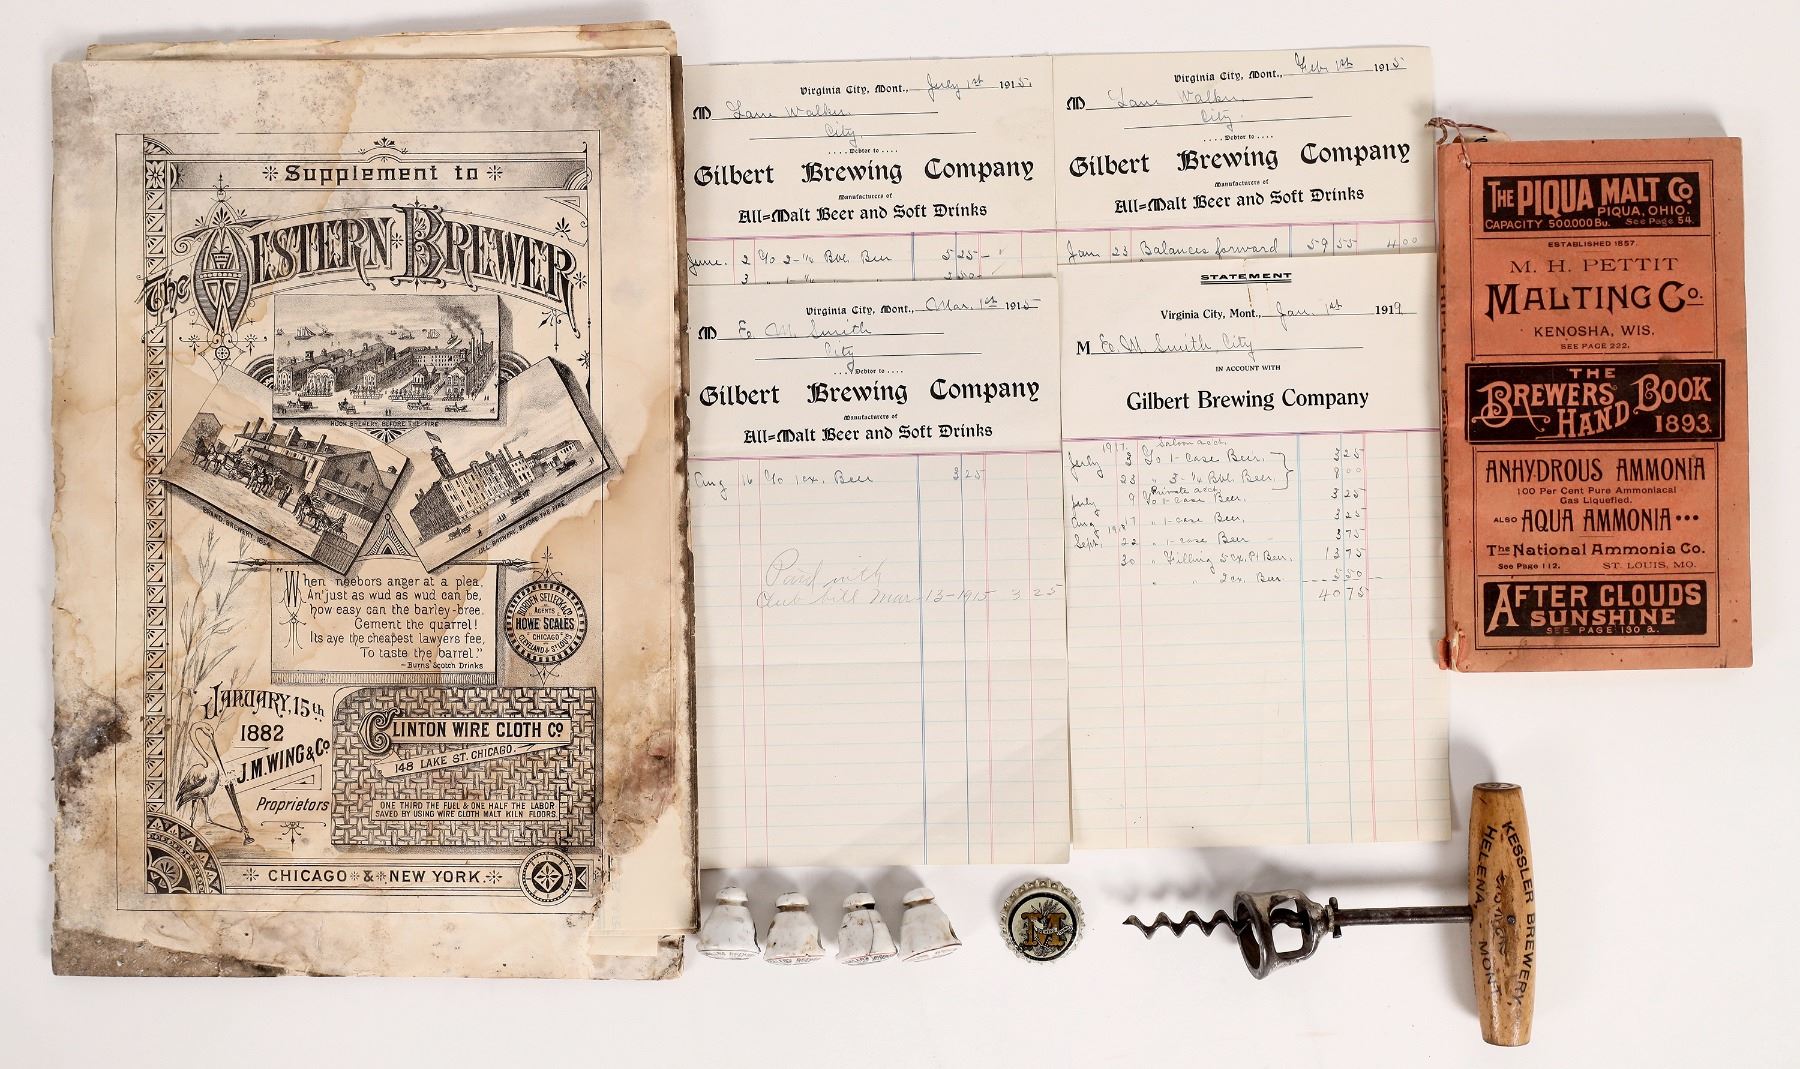 Supplement to
The Western Brewer
HOOK BREWERY, BEFORE THE FIRE
BEFORE THE FIRE.
"When neebors anger at a plea,
An' just as wud as wud can be,
how easy can the barley-bree.
Cement the quarrel!
Its aye the cheapest lawyers fee,
To taste the barrel."
~Burns' Scotch Drinks
BORDEN SELLECK & CO
AGENTS
HOWE SCALES
CHICAGO
CLEVELAND & ST. LOUIS
JANUARY, 15th
1882
J.M. WING & Co
Proprietors
CLINTON WIRE CLOTH Co
148 LAKE ST. CHICAGO.
ONE THIRD THE FUEL & ONE HALF THE LABOR
SAVED BY USING WIRE CLOTH MALT KILN FLOORS.
CHICAGO & NEW YORK.
Virginia City, Mont., July 1st 1915
M Lane Walker
City.
....Debtor to....
Gilbert Brewing Company
Manufacturers of
All=Malt Beer and Soft Drinks
June. 2 To 2-¼ Bbl. Beer 5 25
3
Virginia City, Mont., Feb. 1st 1915
M Lane Walker
City.
....Debtor to....
Gilbert Brewing Company
Manufacturers of
All=Malt Beer and Soft Drinks
Jan 23 Balances forward 59 55 4 00
Virginia City, Mont., Mar. 1st 1915
M E. M. Smith
City
....Debtor to....
Gilbert Brewing Company
Manufacturers of
All=Malt Beer and Soft Drinks
Aug 16 To 1 cx. Beer 3 25
Paid with
Club bill Mar-13-1915 3 25
STATEMENT
Virginia City, Mont., Jan. 1st 1919
M E. M. Smith, City
IN ACCOUNT WITH
Gilbert Brewing Company
1917. Saloon acct.
July 3 To 1-case Beer. 3 25
23 " 3-¼ Bbl. Beer. 8 00
Private acct.
July 9 To 1-case Beer. 3 25
Aug 7 " 1-case Beer. 3 25
1918
Sept. 22 " 1-case Beer 3 75
30 " Filling 5 cx. Pt. Beer. 13 75
" " 2 cx. Beer. 5 50
40 75
THE PIQUA MALT CO
PIQUA, OHIO.
CAPACITY 500.000 Bu. See Page 54.
ESTABLISHED 1857.
M. H. PETTIT
MALTING Co.
KENOSHA, WIS.
SEE PAGE 222.
THE
BREWERS' HAND BOOK
1893.
ANHYDROUS AMMONIA
100 Per Cent Pure Ammoniacal
Gas Liquefied.
ALSO AQUA AMMONIA •••
The National Ammonia Co.
See Page 112. ST. LOUIS, MO.
AFTER CLOUDS
SUNSHINE
SEE PAGE 130 a.
M
KESSLER BREWERY,
HELENA - MONT.